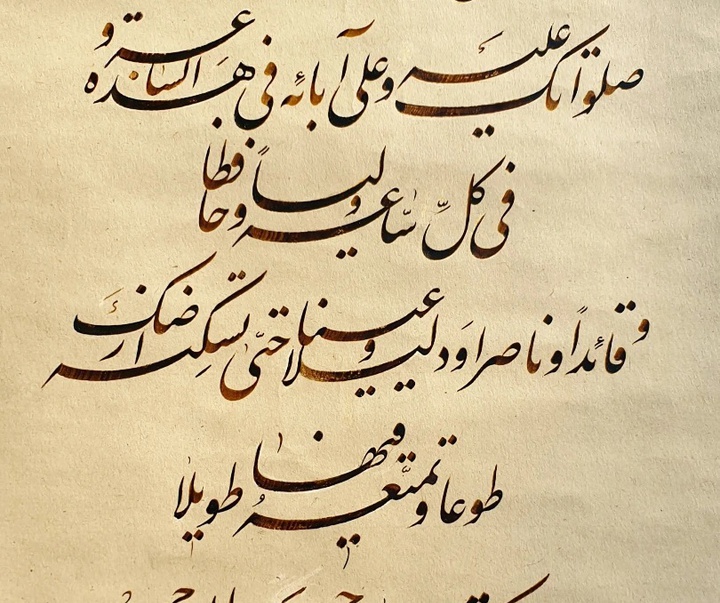 صلواتک علیه وعلی آبائه فی هذه الساعة و
فی کلّ ساعة ولیاً وحافظا
وقائداً وناصرا وَدلیلا وعینا حتّی تسکنه ارضَک
طوعا وتمتّعهُ فیها طویلا